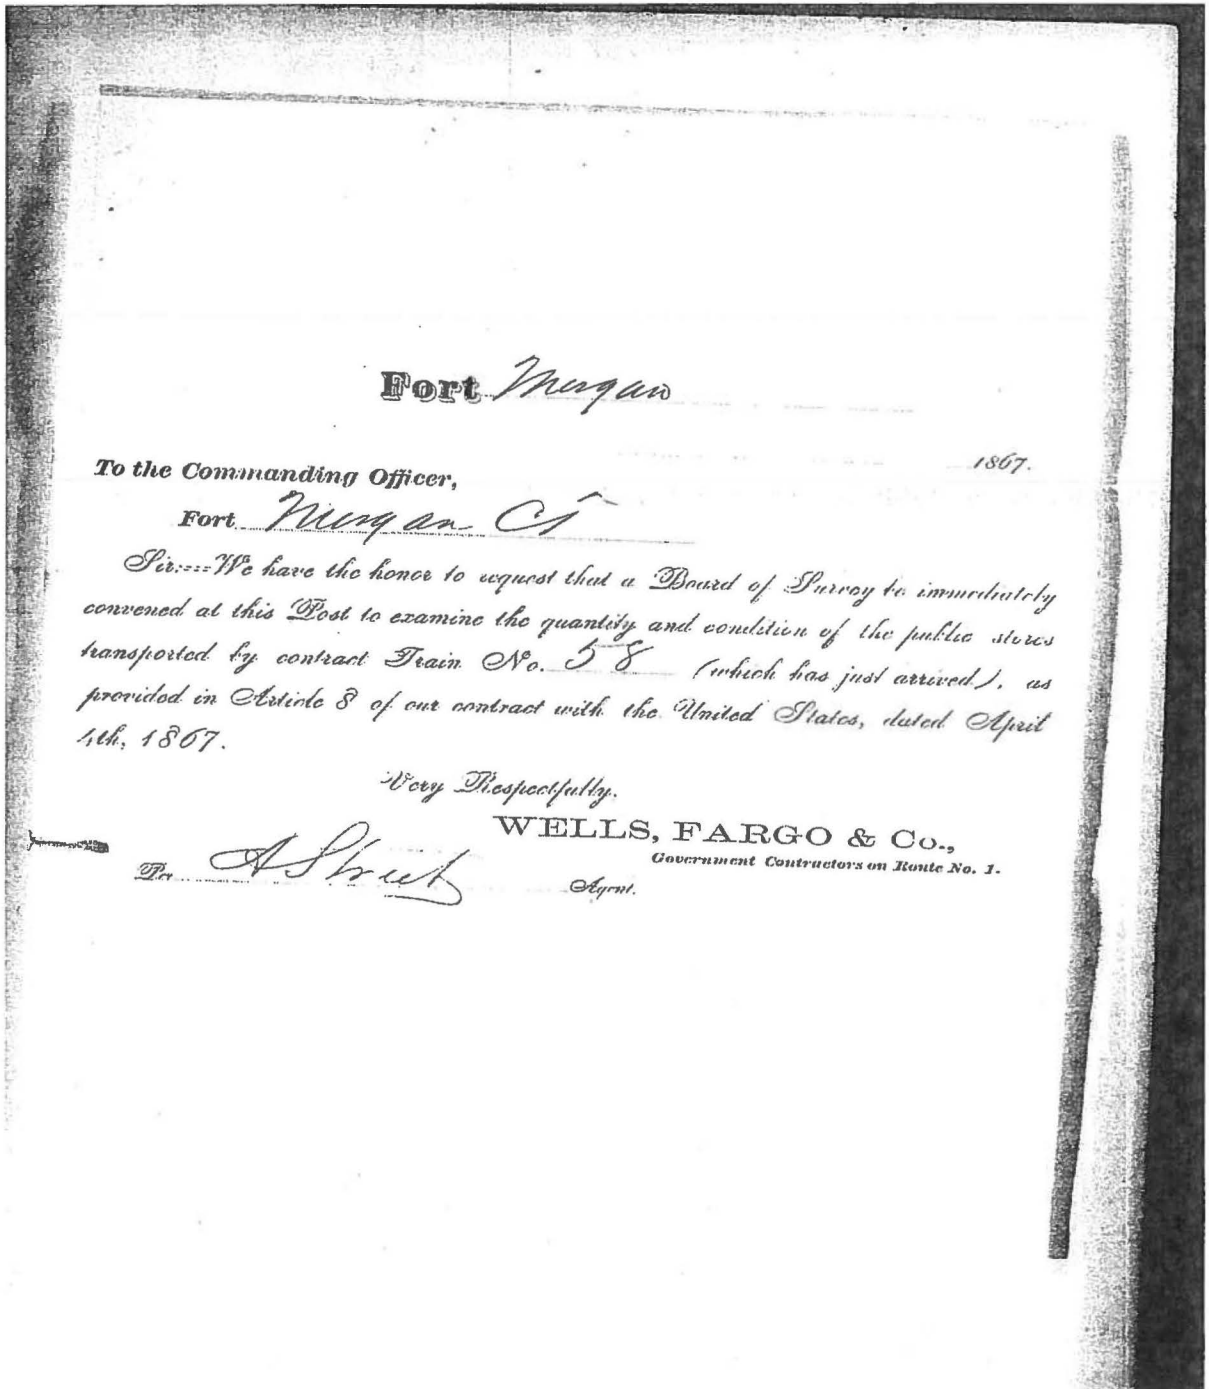 Fort Morgan
1867.
To the Commanding Officer,
Fort Morgan CT
Sir:---We have the honor to request that a Board of Survey be immediately
convened at this Post to examine the quantity and condition of the public stores
transported by contract Train No. 58 (which has just arrived), as
provided in Article 8 of our contract with the United States, dated April
4th, 1867.
Very Respectfully,
WELLS, FARGO & Co.,
Government Contractors on Route No. 1.
Per A Street Agent.